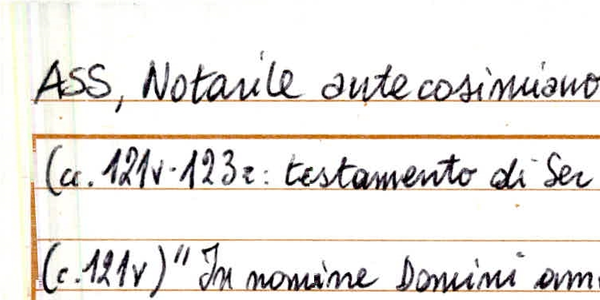 ASS, Notarile antecosimiano
(cc. 121v-123r: testamento di Ser
(c. 121v) " In nomine Domini am